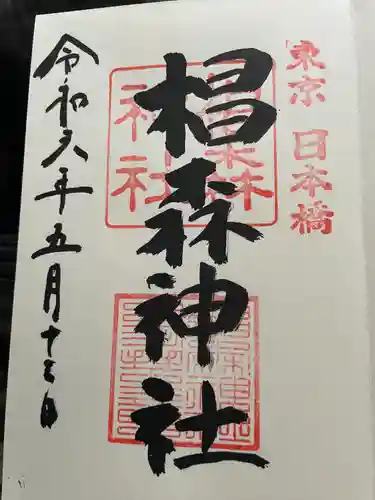 東京 日本橋
椙森神社
椙森神社
令和六年五月十三日